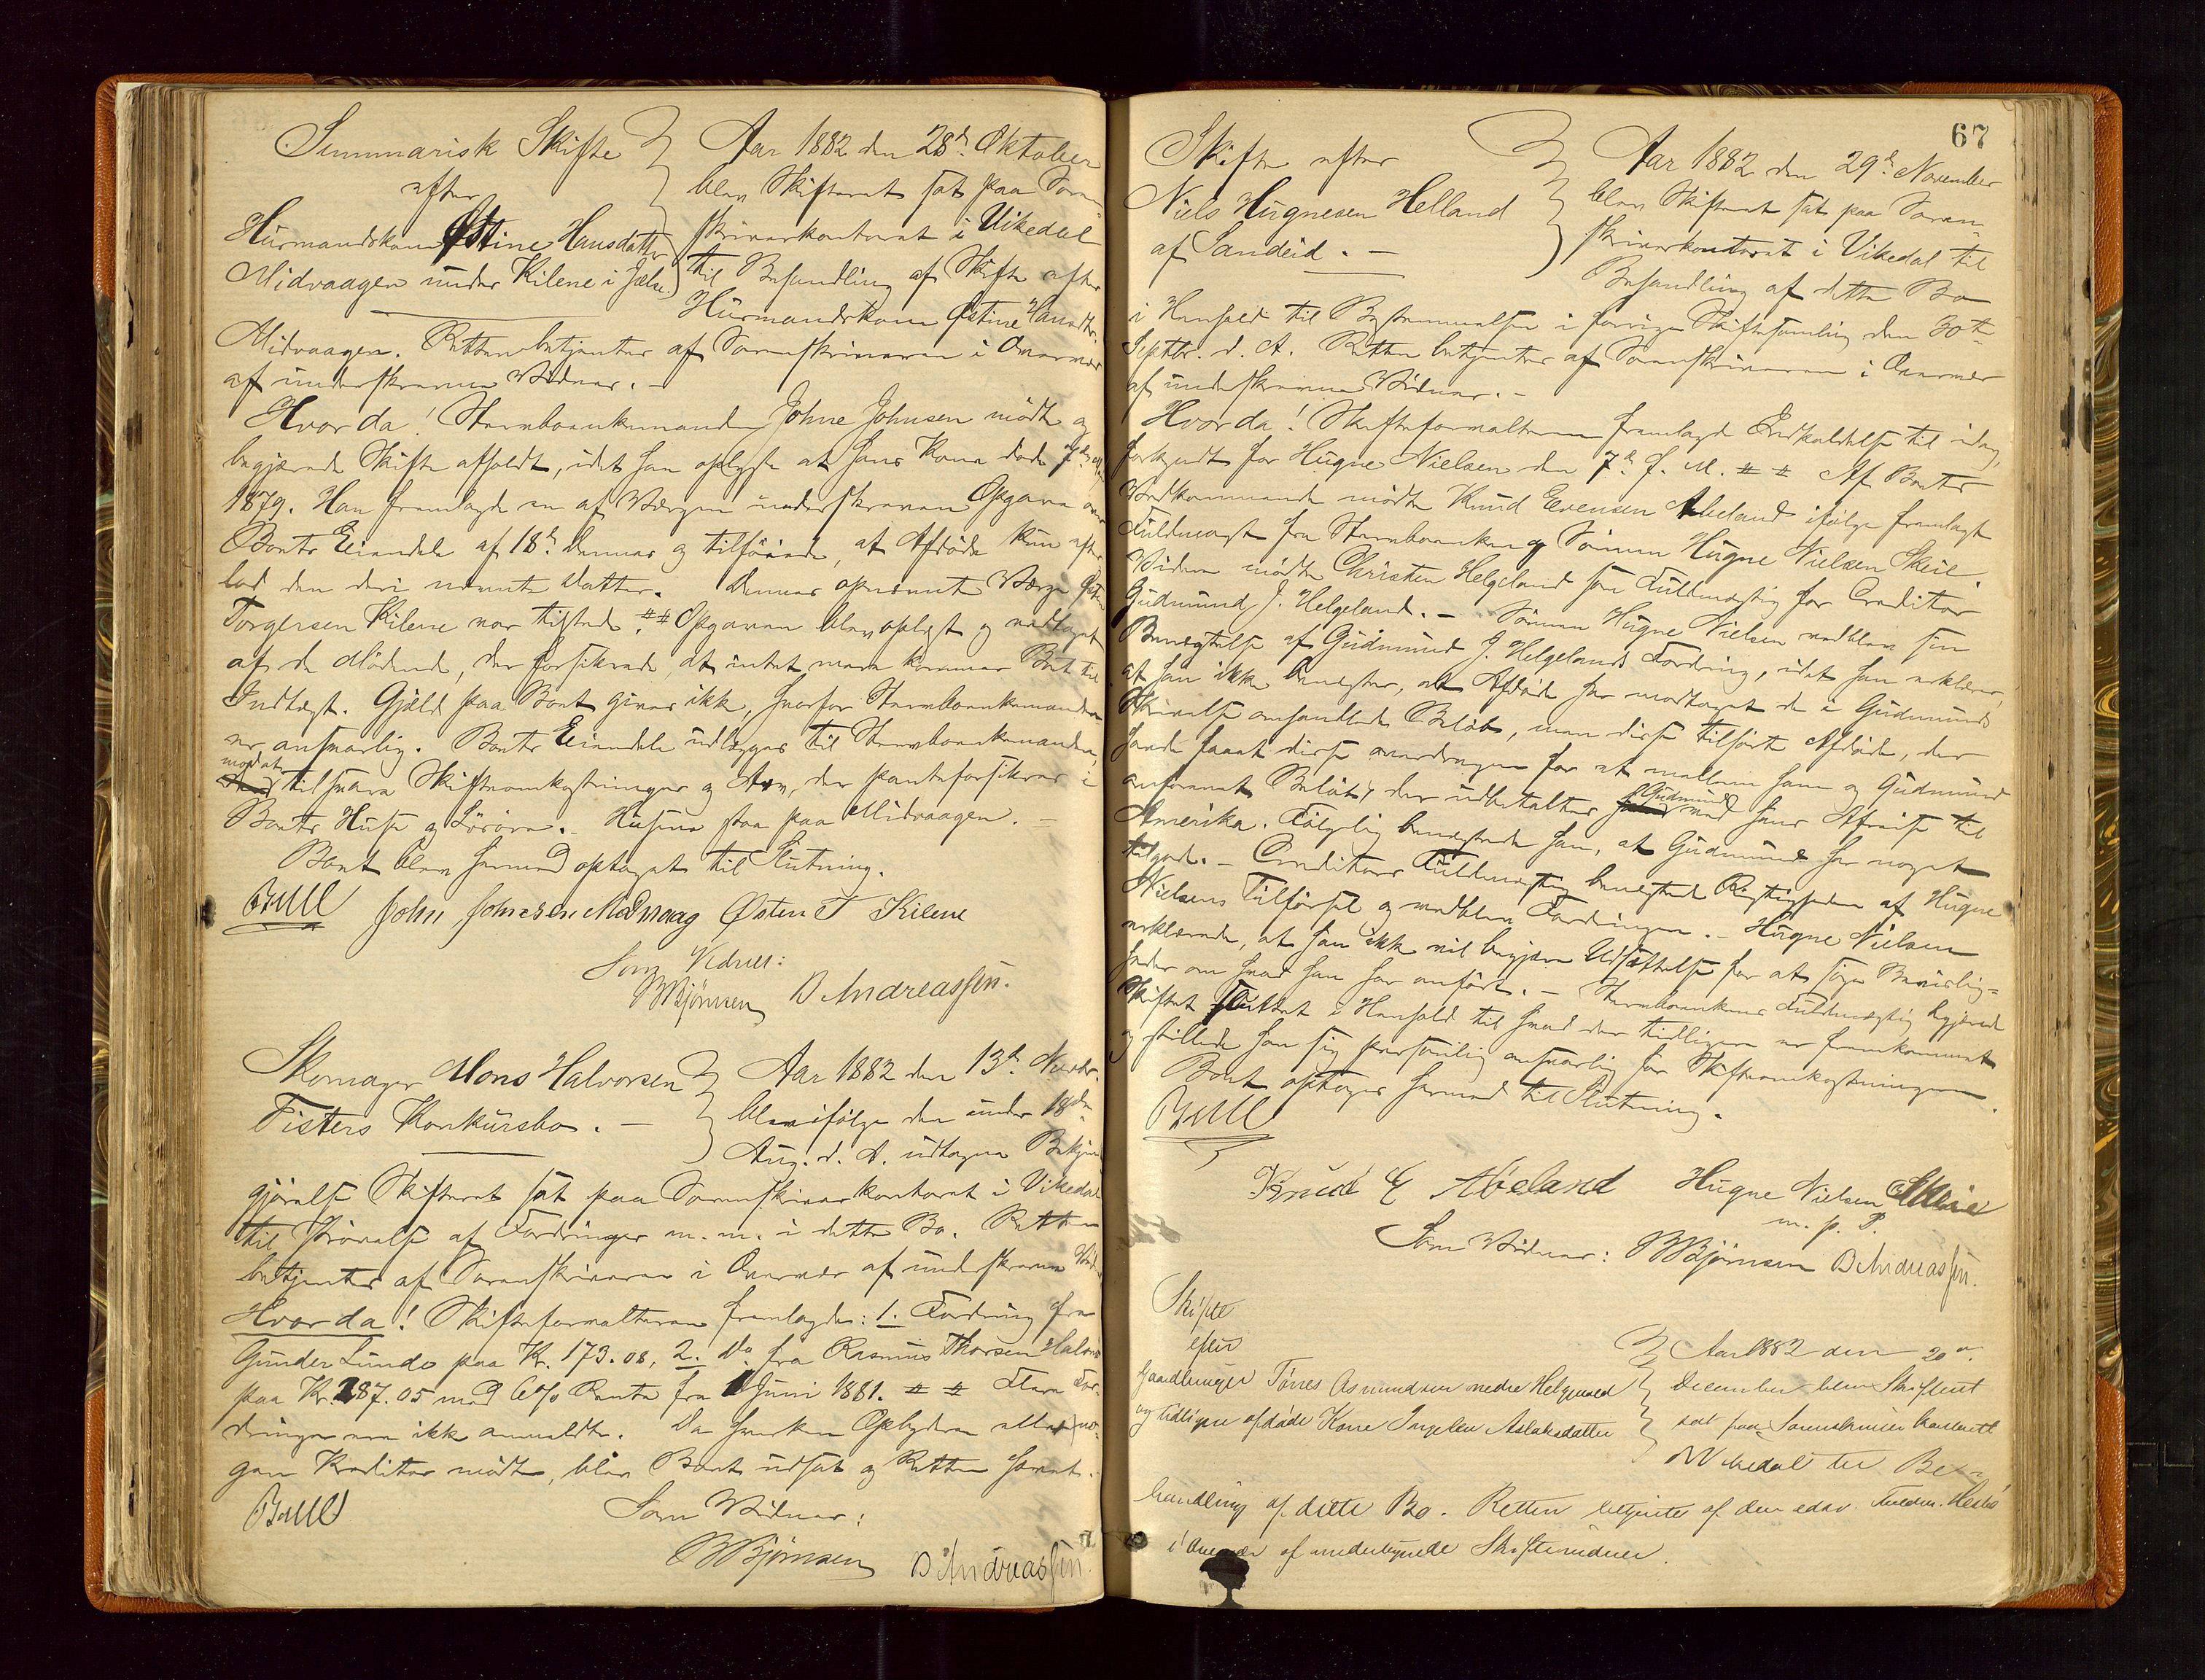 Summarisk Skifte
efter
Huusmandskone Østine Hansdatter
Midvaagen under Kilene i Jælse.
Aar 1882 den 28de Oktober
blev Skifteret sat paa Soren-
skriverkontoret i Vikedal
til Behandling af Skifte efter
Huusmandskone Østine Hansdtr.
Midvaagen. Retten betjentes af Sorenskriveren i Overvær
af underskrevne Vidner. –
Hvor da! Stervboenkemanden Johne Johnsen mødte og
begjærede Skifte afholdt, idet han oplyste at hans Kone døde
1879. Han fremlagde en af Værgen underskreven Opgave over
Boets Eiendele af 18de dennes og tilføiede, at Afdøde kun efter-
lod den deri nævnte Datter. Dennes opnævnte Værge Østen
Torgersen Kilene var tilstede. ## Opgaven blev oplæst og vedtaget
af de Mødende, der forsikrede, at intet mere kommer Boet til
Indtægt. Gjæld paa Boet gives ikke, hvorfor Stervboenkemanden
er ansvarlig. Boets Eiendele udlægges til Stervboenkemanden,
mod at
tilsvare Skifteomkostninger og Arv, der panteforsikres i
Boets Huse og Løsøre. – Husene staa paa Midvaagen. –
Boet blev hermed optaget til Slutning.
Bull John Johnesen Midvaag Østen T Kilene
Som Vidner:
BBjørnsen B Andreassen.
Skomager Mons Halvorsen
Fisters Konkursbo. –
Aar 1882 den 13de Novbr.
blev ifølge den under 18de
Aug. d. A. udtagne Bekjendt-
gjørelse Skifteret sat paa Sorenskriverkontoret i Vikedal
til Prøvelse af Fordringer m. m. i dette Bo. Retten
betjentes af Sorenskriveren i Overvær af underskrevne Vidner
Hvor da! Skifteforvalteren fremlagde: 1. Fordring fra
Gunder Lunde paa Kr. 173.08, 2. Do fra Rasmus Thorsen
paa Kr. 287.05 med 6% Rente fra 1 Juni 1881. # # Flere For-
dringer ere ikke anmeldte. Da hverken Opbyderen eller no-
gen Kreditor mødte, blev Boet udsat og Retten hævet.
Bull Som Vidner:
BBjørnsen B Andreassen.
67
Skifte efter
Niels Hugnesen Helland
af Sandeid. –
Aar 1882 den 29de November
blev Skifteret sat paa Soren-
skriverkontoret i Vikedal til
Behandling af dette Bo
i Henhold til Bestemmelsen i forrige Skiftesamling den 30te
Septbr. d. A. Retten betjentes af Sorenskriveren i Overvær
af underskrevne Vidner. –
Hvor da! Skifteforvalteren fremlagde Indkaldelse til idag,
forkyndt for Hugne Nielsen den 7de f. M. # # Af Boets
Vedkommende mødte Knud Evensen Abeland ifølge fremlagt
Fuldmagt fra Stervboenken og Sønnen Hugne Nielsen Skeie.
Videre mødte Christen Helgeland som Fuldmægtig for Creditor
Gudmund J. Helgeland. – Sønnen Hugne Nielsen vedblev sin
Benægtelse af Gudmund J. Helgelands Fordring, idet han erklærer,
at han ikke benegter, at Afdøde har modtaget de i Gudmunds
Skrivelse omhandlede Beløb, men disse tilhørte Afdøde, der
havde faaet disse overdragen for et mellem ham og Gudmund
omforenet Beløb, der udbetaltes Gudmund ved hans Afreise til
Amerika. Følgelig benegtede han, at Gudmund har noget
tilgode. – Creditors Fuldmægtig benegtede Rigtigheden af Hugne
Nielsens Tilførsel og vedblev Fordringen. – Hugne Nielsen
erklærede, at han ikke vil begjære Udsættelse for at søge Bevislig-
heder om hvad han har anført. – Stervboenkens Fuldmægtig begjærede
Skiftet sluttet i Henhold til hvad der tidligere er fremkommet
og stillede han sig personlig ansvarlig for Skifteomkostningerne.
Boet optoges hermed til Slutning.
Bull
Knud E Abeland Hugne Nielsen Skeie
m. p. P.
Som Vidner: BBjørnsen B Andreassen.
Skifte
efter
Gaardbruger Tønes Asmundsen nedre Helgevold
og tidligere afdøde Kone Ingeleu Aslaksdatter
Aar 1882 den 20de
December blev Skifteret
sat paa Sorenskriver kontoret
i Vikedal til Be-
handling af dette Bo. Retten betjentes af den edsv. Fuldm. Hesbø
i Overvær af undertegnede Skiftevidner.